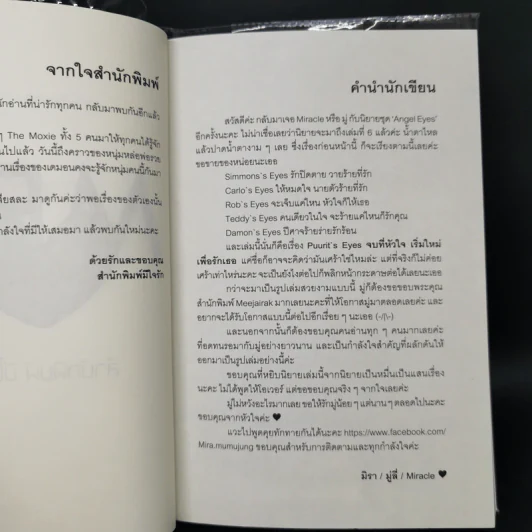 จากใจสำนักพิมพ์
นักอ่านที่น่ารักทุกคน กลับมาพบกันอีกแล้ว
ๆ The Moxie ทั้ง 5 คนมาให้ทุกคนได้รู้จัก
นไปแล้ว วันนี้ถึงคราวของหนุ่มหล่อพ่อรวย
านเรื่องของเดมอนคงจะรู้จักหนุ่มคนนี้กันมา
สียสละ มาดูกันค่ะว่าพอเรื่องของตัวเองนั้น
กำลังใจที่มีให้เสมอมา แล้วพบกันใหม่นะคะ
ด้วยรักและขอบคุณ
สำนักพิมพ์มีใจรัก
คำนำนักเขียน
สวัสดีค่ะ กลับมาเจอ Miracle หรือ มู่ กับนิยายชุด 'Angel Eyes'
อีกครั้งนะคะ ไม่น่าเชื่อเลยว่านิยายจะมาถึงเล่มที่ 6 แล้วค่ะ น้ำตาไหล
แล้วปาดน้ำตางาม ๆ เลย ซึ่งเรื่องก่อนหน้านี้ ก็จะเรียงตามนี้เลยค่ะ
ขอขายของหน่อยนะเธอ
Simmons's Eyes รักปิดตาย วายร้ายที่รัก
Carlo's Eyes ให้หมดใจ นายตัวร้ายที่รัก
Rob's Eyes จะเจ็บแค่ไหน หัวใจก็ให้เธอ
Teddy's Eyes คนเดียวในใจ จะร้ายแค่ไหนก็รักคุณ
Damon's Eyes ปีศาจร้ายร่ายรักร้อน
และเล่มนี้นั่นก็คือเรื่อง Puurit's Eyes จบที่หัวใจ เริ่มใหม่
เพื่อรักเธอ แค่ชื่อก็อาจจะคิดว่ามันเศร้าใช่ไหมล่ะ แต่ที่จริงก็ไม่ค่อย
เศร้าเท่าไหร่นะคะ จะเป็นยังไงต่อไปก็พลิกหน้ากระดาษต่อได้เลยนะเธอ
กว่าจะมาเป็นรูปเล่มสวยงามแบบนี้ มู่ก็ต้องขอขอบพระคุณ
สำนักพิมพ์ Meejairak มากเลยนะคะที่ให้โอกาสมู่มาตลอดเลยค่ะ และ
อยากจะได้รับโอกาสแบบนี้ต่อไปอีกเรื่อย ๆ นะเออ (-/\-)
และนอกจากนั้นก็ต้องขอบคุณคนอ่านทุก ๆ คนมากเลยค่ะ
ที่อดทนรอมากับมู่อย่างยาวนาน และเป็นกำลังใจสำคัญที่ผลักดันให้
ออกมาเป็นรูปเล่มอย่างนี้ค่ะ
ขอบคุณที่หยิบนิยายเล่มนี้จากนิยายเป็นหมื่นเป็นแสนเรื่อง
นะคะ ไม่ได้พูดให้โอเวอร์ แต่ขอขอบคุณจริง ๆ จากใจเลยค่ะ
มู่ไม่หวังอะไรมากเลย ขอให้รักมู่น้อย ๆ แต่นาน ๆ ตลอดไปนะคะ
ขอบคุณจากหัวใจค่ะ ♥
แวะไปพูดคุยทักทายกันได้นะคะ https://www.facebook.com/
Mira.mumujung ขอบคุณสำหรับการติดตามและทุกกำลังใจค่ะ
มิรา / มู่ลี่ / Miracle ♥